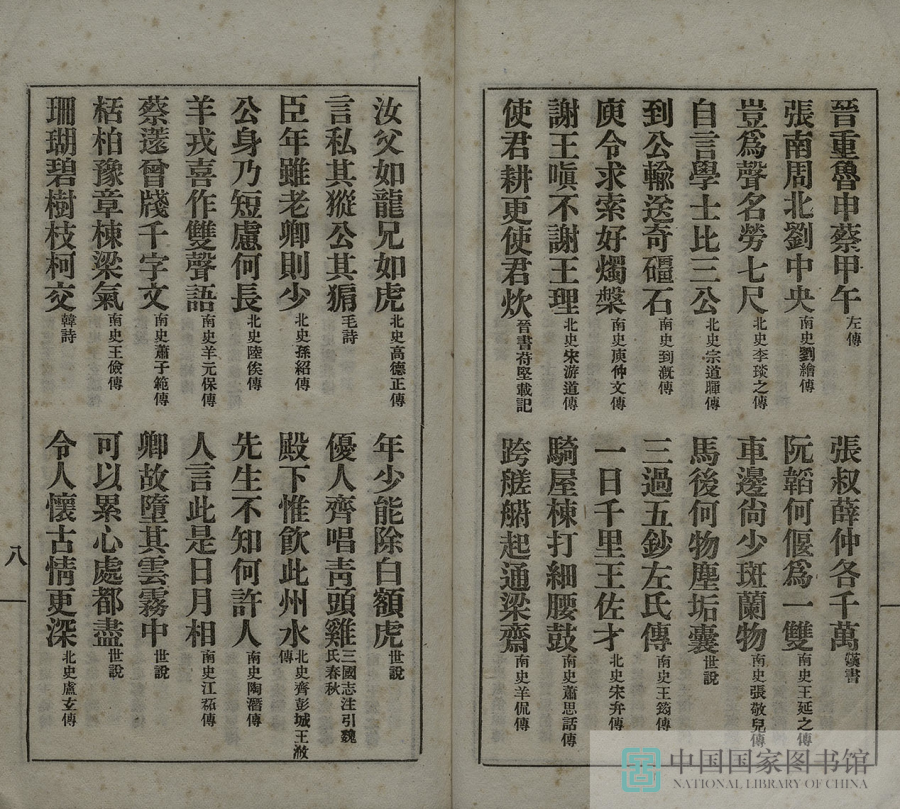 晉重魯申蔡甲午左傳 張叔薛仲各千萬漢書
張南周北劉中央南史劉繪傳 阮韜何偃爲一雙南史王延之傳
豈爲聲名勞七尺北史李琰之傳 車邊尙少斑蘭物南史張敬兒傳
自言學士比三公北史宗道暉傳 馬後何物塵垢囊世說
到公輸送奇礓石南史到漑傳 三過五鈔左氏傳南史王筠傳
庾令求索好燭槃南史庾仲文傳 一日千里王佐才北史宋弁傳
謝王嗔不謝王理北史宋游道傳 騎屋棟打細腰鼓南史蕭思話傳
使君耕更使君炊晉書苻堅載記 跨艖䑰起通梁齋南史羊侃傳
汝父如龍兄如虎北史高德正傳 年少能除白額虎世說
言私其豵公其豣毛詩 優人齊唱靑頭雞三國志注引魏氏春秋
臣年雖老卿則少北史孫紹傳 殿下惟飮此州水北史齊彭城王浟傳
公身乃短慮何長北史陸俟傳 先生不知何許人南史陶潛傳
羊戎喜作雙聲語南史羊元保傳 人言此是日月相南史江祏傳
蔡薳曾牋千字文南史蕭子範傳 卿故墮其雲霧中世說
栝柏豫章棟梁氣南史王儉傳 可以累心處都盡世說
珊瑚碧樹枝柯交韓詩 令人懷古情更深北史盧玄傳
八
中国国家图书馆
NATIONAL LIBRARY OF CHINA